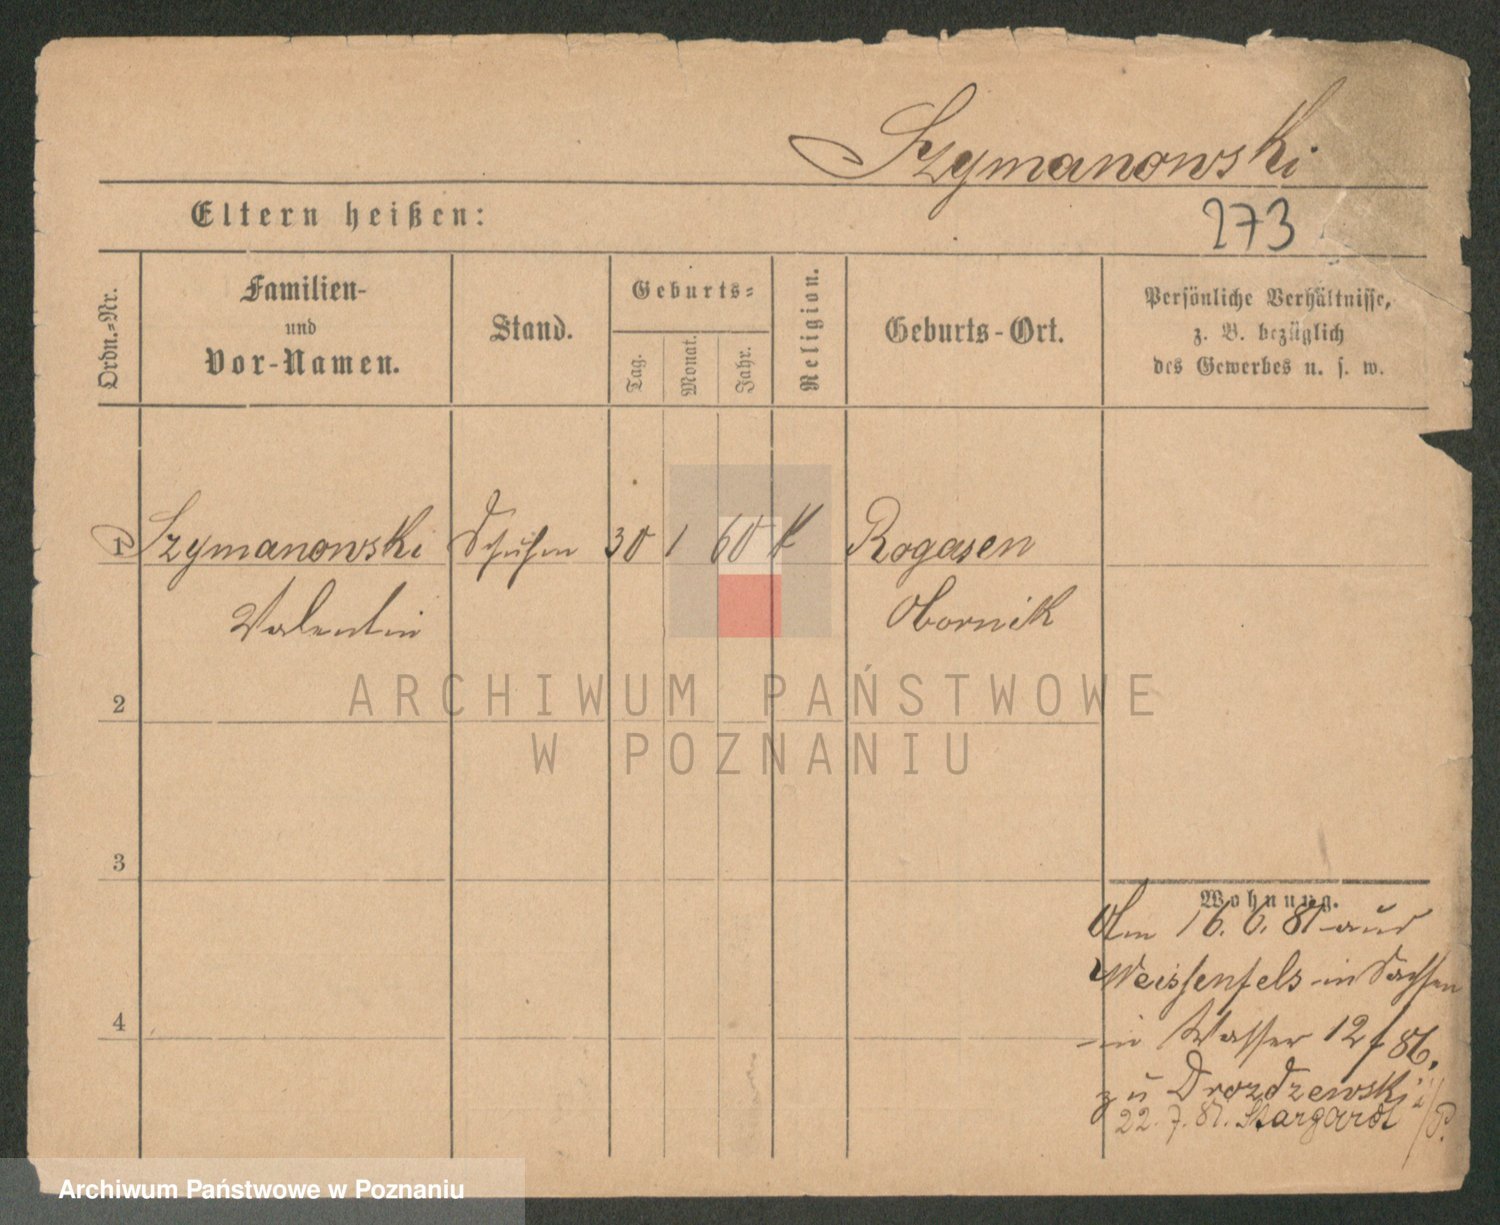 Szymanowski
Eltern heißen:
273
Ordn.-Nr.
Familien-
und
Vor-Namen.
Stand.
Geburts-
Tag.
Monat.
Jahr.
Religion.
Geburts-Ort.
Persönliche Verhältnisse,
z. B. bezüglich
des Gewerbes u. s. w.
1 Szymanowski 30 1 60 K Rogasen
Valentin Obornik
2
ARCHIWUM PAŃSTWOWE
W POZNANIU
3
4
Wohnung.
Am 16. 6. 81 aus
Weissenfels in Sachsen
in Wasser 12
zu Drozdzewski
22. 7. 81. Stargardt
Archiwum Państwowe w Poznaniu